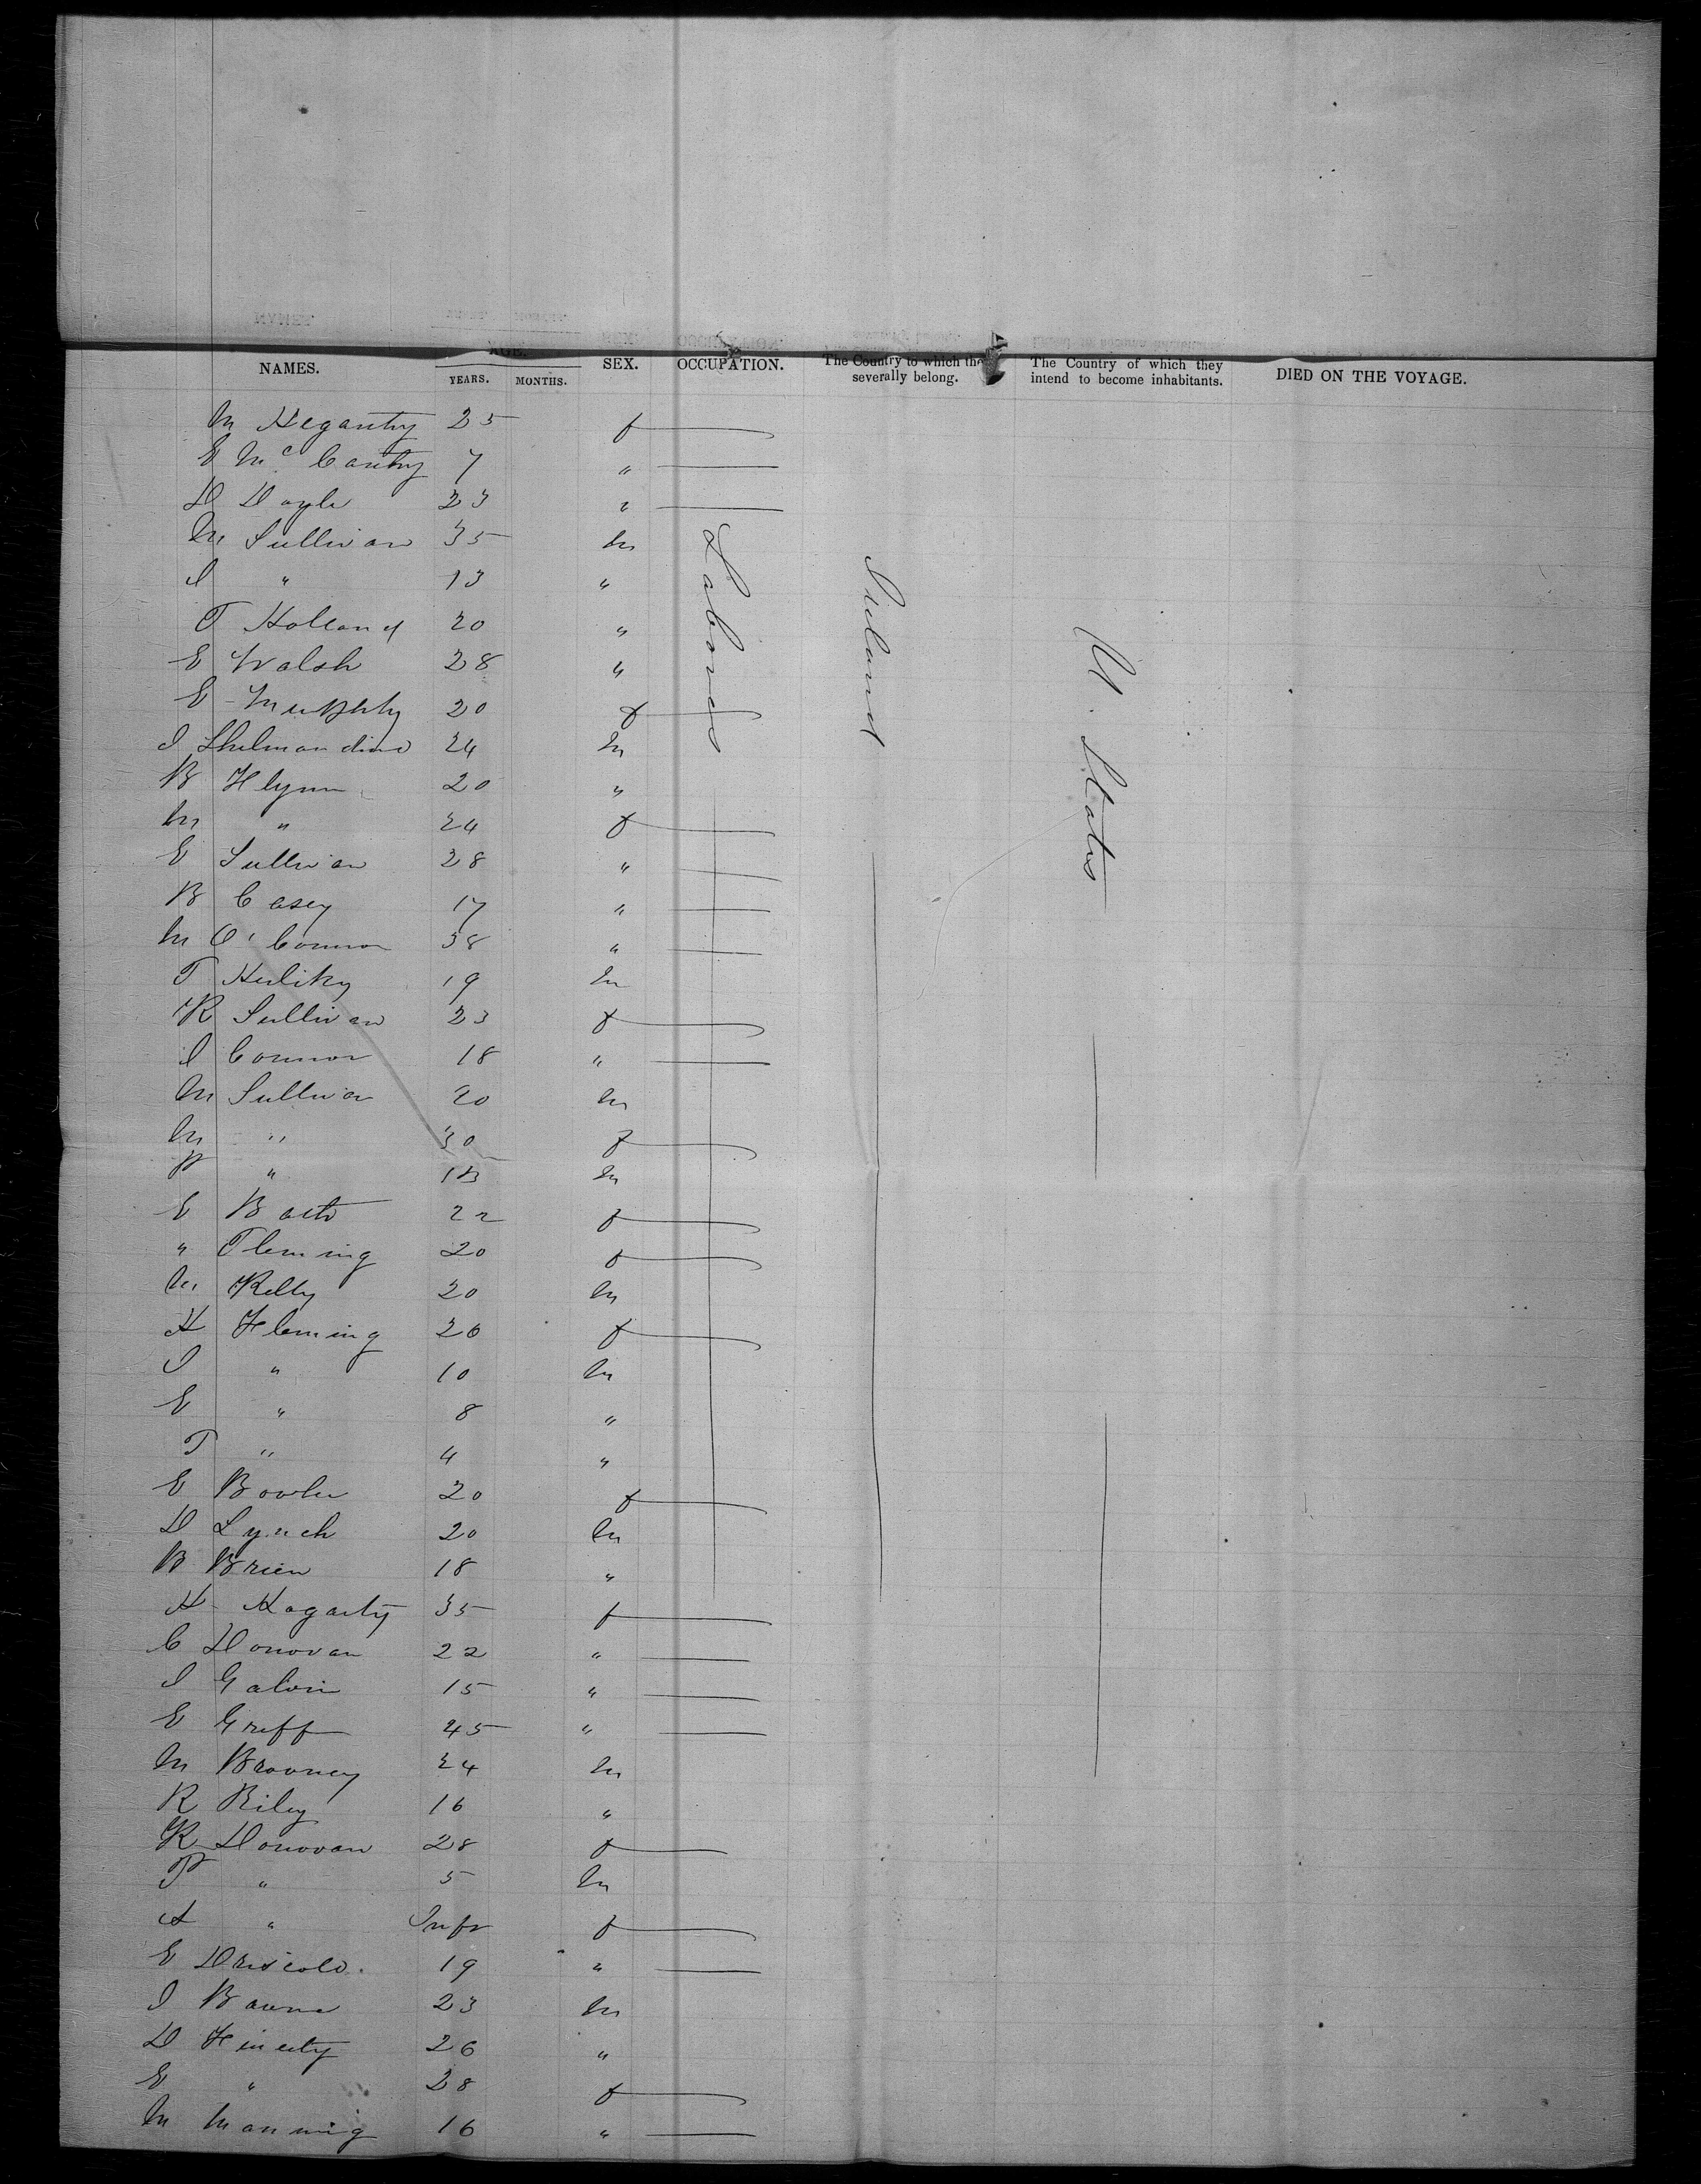 NAMES. AGE. YEARS. MONTHS. SEX. OCCUPATION. The Country to which they severally belong. The Country of which they intend to become inhabitants. DIED ON THE VOYAGE.
M Hegarty 25 f
E McCarthy 7 "
D Doyle 23 "
M Sullivan 35 M
J " 13 "
T Holland 20 "
E Walsh 28 "
E Murphy 20 f
J 24 M
B Flynn 20 "
M " 24 f
E Sullivan 28 "
B Casey 17 "
M O'Connor 38 "
T 19 M
K Sullivan 23 f
J Connor 18 "
M Sullivan 20 M
M " 30 f
P " 13 M
E 22 f
" Fleming 20 f
M Kelly 20 M
H Fleming 26 f
J " 10 M
E " 8 "
T " 4 "
E Bowler 20 f
D Lynch 20 M
B Brien 18 "
H Hogarty 35 f
C Donovan 22 "
J Galvin 15 "
E Griff 45 "
M 24 M
R Riley 16 "
K Donovan 28 f
P " 5 M
A " Inft f
E Driscold. 19 "
J 23 M
D 26 "
E " 28 f
M Manning 16 "
Labores
Ireland
U. States